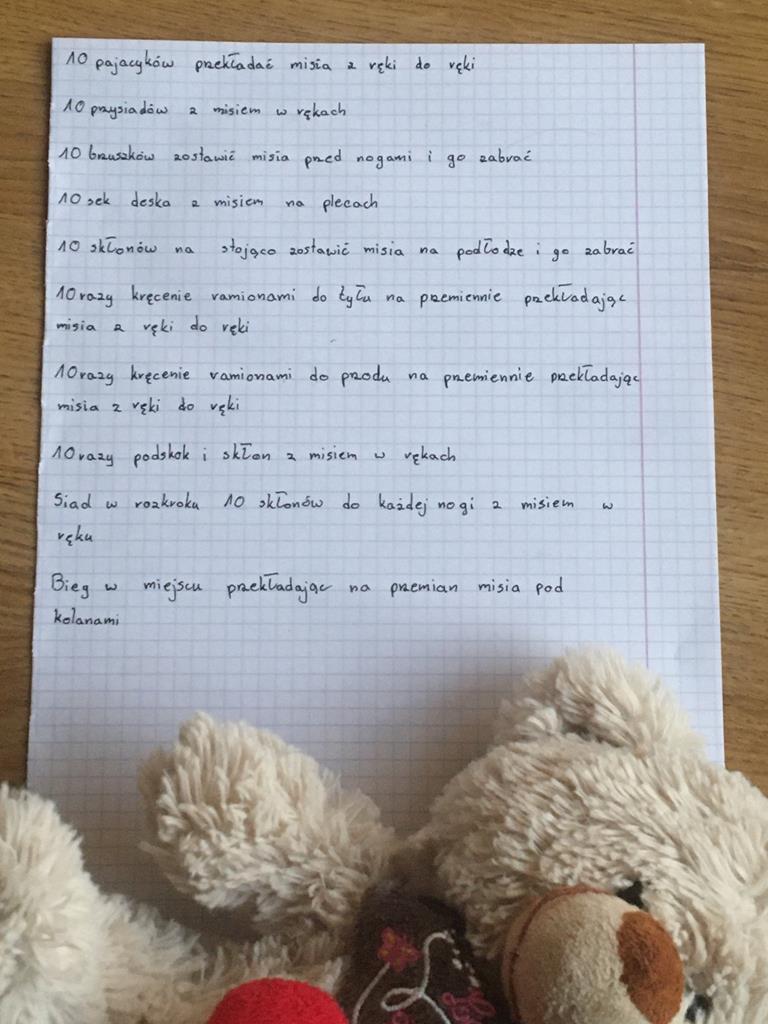 10 pajacyków przekładać misia z ręki do ręki
10 przysiadów z misiem w rękach
10 brzuszków zostawić misia przed nogami i go zabrać
10 sek deska z misiem na plecach
10 skłonów na stojąco zostawić misia na podłodze i go zabrać
10 razy kręcenie ramionami do tyłu na przemiennie przekładając
misia z ręki do ręki
10 razy kręcenie ramionami do przodu na przemiennie przekładając
misia z ręki do ręki
10 razy podskok i skłon z misiem w rękach
Siad w rozkroku 10 skłonów do każdej nogi z misiem w
ręku
Bieg w miejscu przekładając na przemian misia pod
kolanami